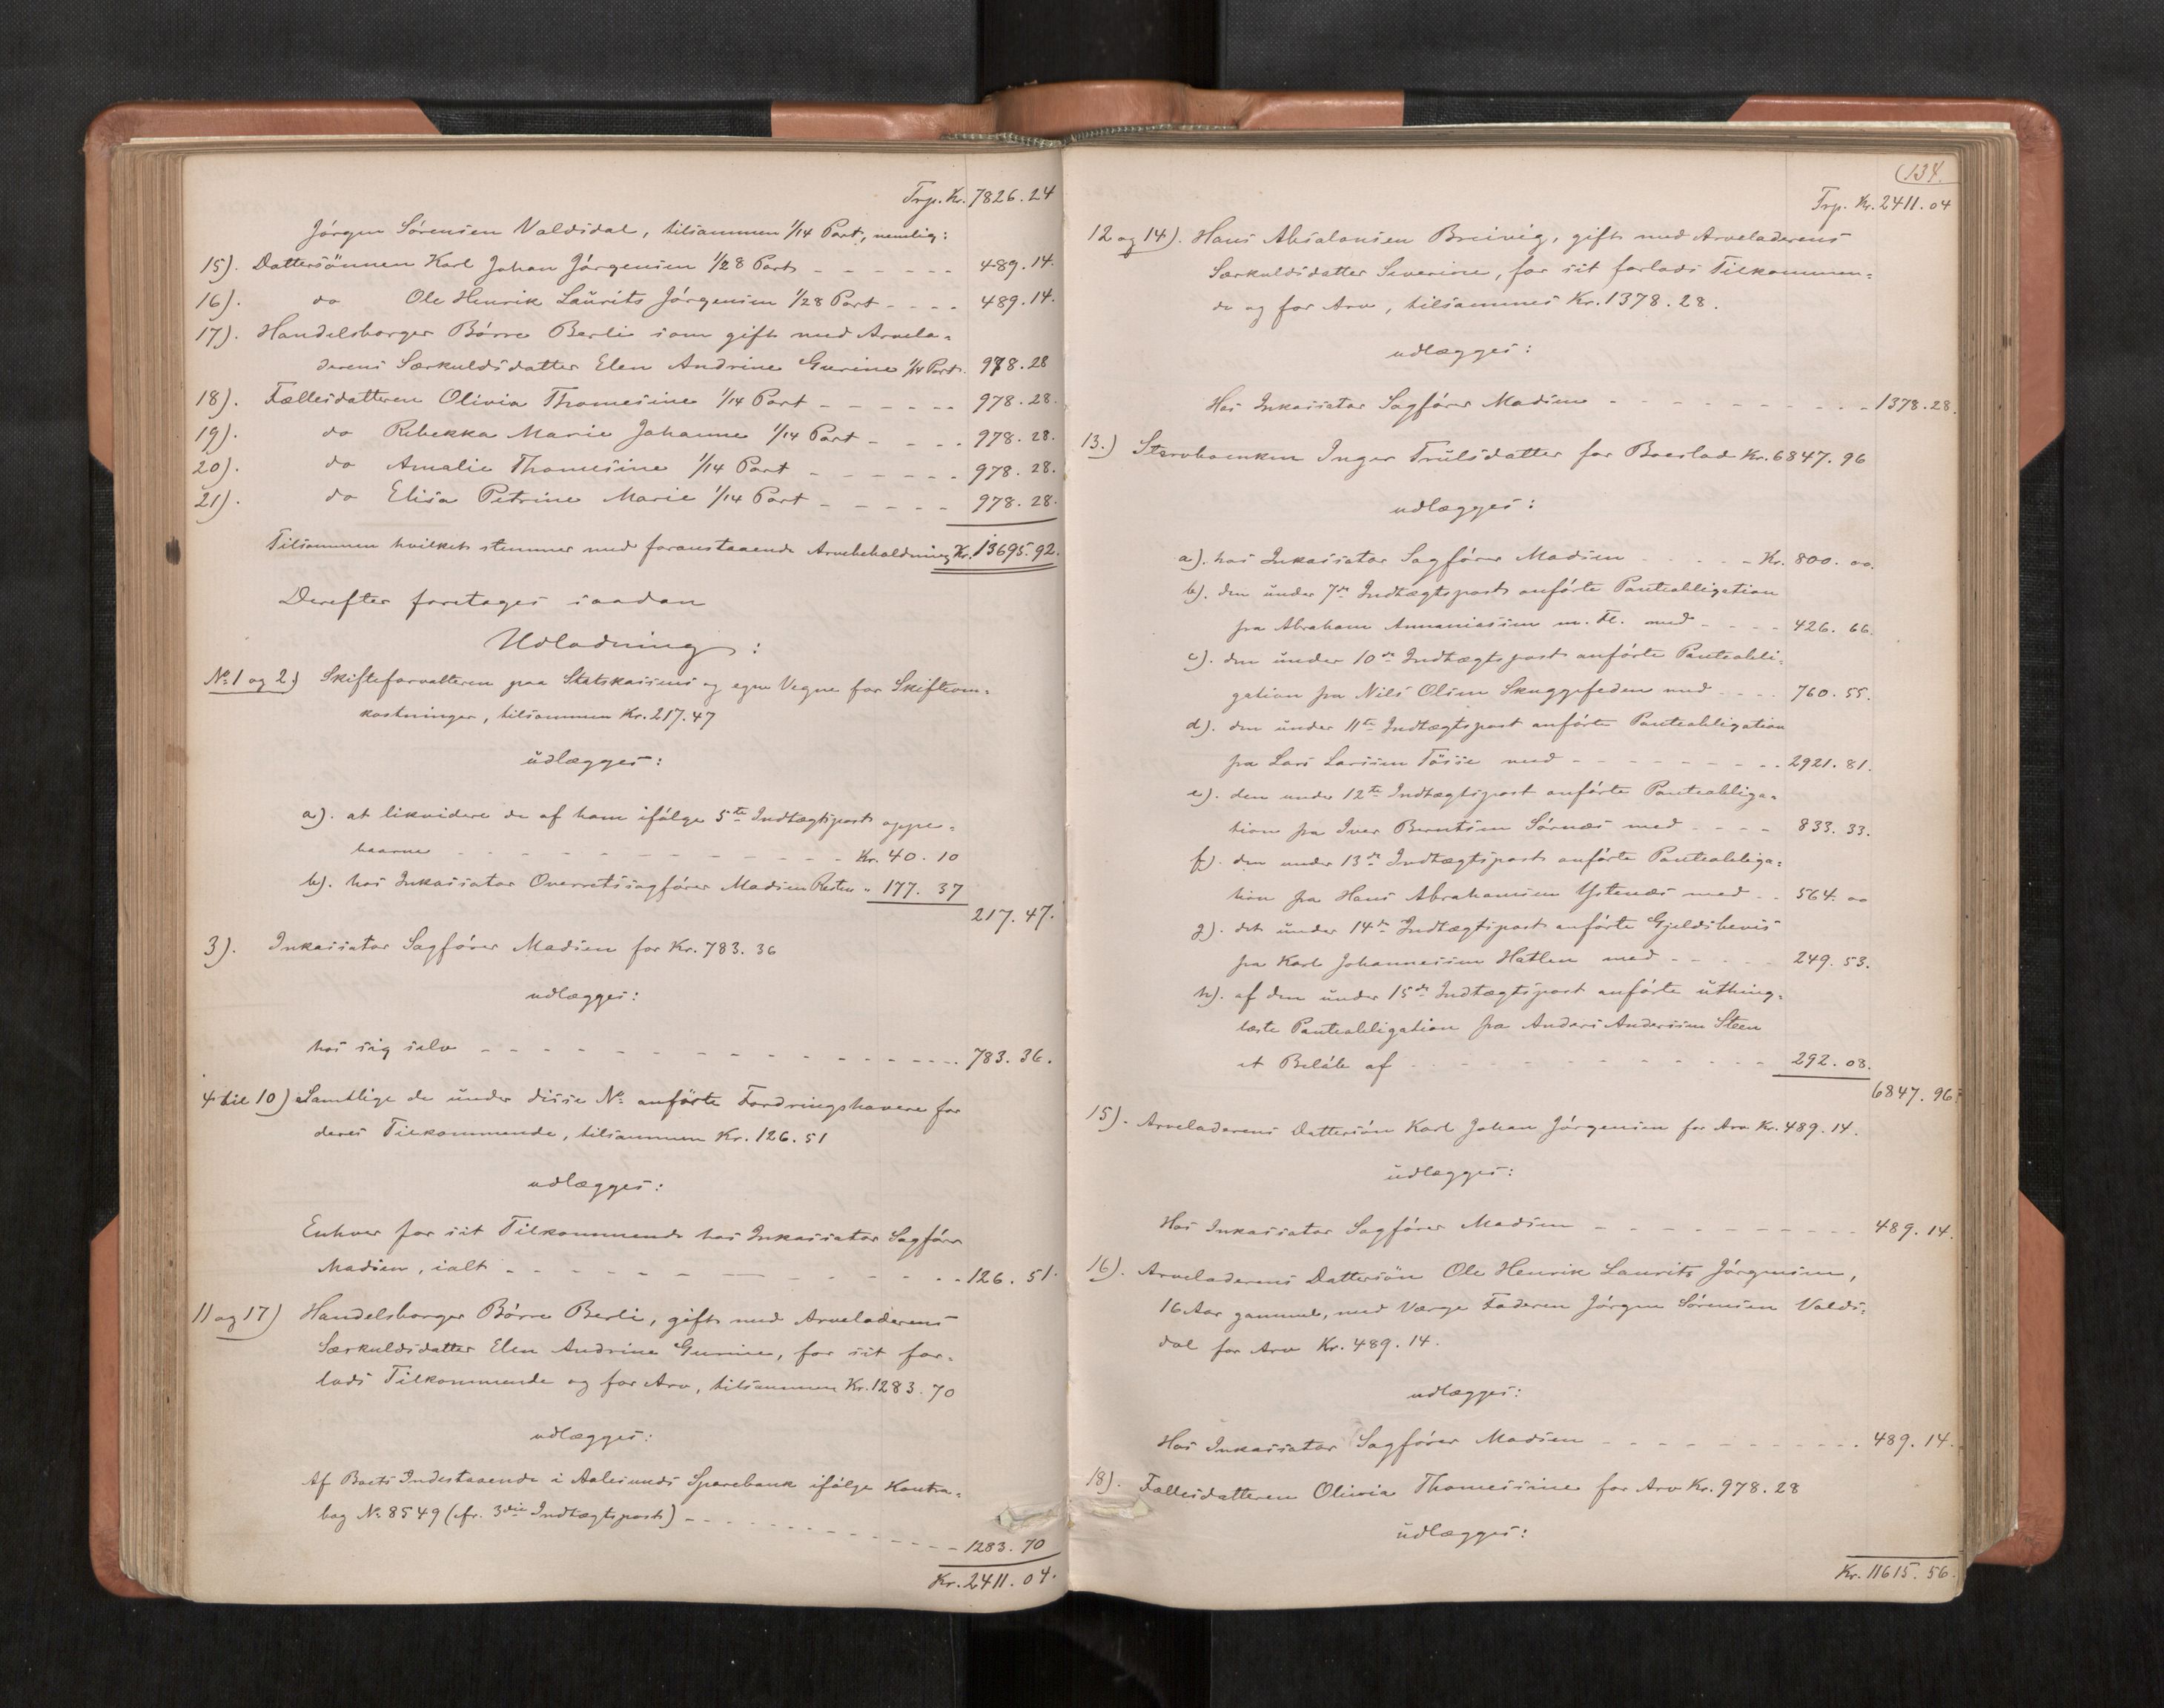 Trp. Kr. 7826.24
Jörgen Sörensen Valdsdal, tilsammen 1/14 Part, nemlig:
15). Dattersönnen Karl Johan Jörgensen 1/28 Part - - - - - - 489.14.
16). do Ole Henrik Laurits Jörgensen 1/28 Part - - - - 489.14.
17). Handelsborger Börre Berli som gift med Arvela-
derens Særkuldsdatter Elen Andrine Gurine 1/14 Part. 978.28
18). Fællesdatteren Olivia Thomesine 1/14 Part - - - - - - 978.28.
19). do Rebekka Marie Johanne 1/14 Part - - - - 978.28.
20). do Amalie Thomesine 1/14 Part - - - - - - 978.28.
21). do Elisa Petrine Marie 1/14 Part - - - - - 978.28.
Tilsammen hvilket stemmer med foranstaaende Arvebeholdning Kr. 13695.92.
Derefter foretages saadan
Udlodning:
No. 1 og 2) Skifteforvalteren paa Statskassens og egne Vegne for Skifteom-
kostninger, tilsammen Kr. 217.47
udlægges:
a). at likvidere de af ham ifölge 5te Indtægtspost oppe-
baarne - - - - - - - - - - - - Kr. 40.10
b). hos Inkassator Overretssagförer Madsen Resten „ 177.37
217.47.
3). Inkassator Sagförer Madsen for Kr. 783.36
udlægges:
hos sig selv - - - - - - - - - - - - - - - - 783.36.
4 til 10) Samtlige de under disse No. anförte Fordringshavere for
deres Tilkommende, tilsammen Kr. 126.51
udlægges:
Enhver for sit Tilkommende hos Inkassator Sagförer
Madsen, ialt - - - - - - - - - - - - - - 126.51.
11 og 17) Handelsborger Börre Berli, gift med Arveladerens
Særkuldsdatter Elen Andrine Gurine, for sit for-
lods Tilkommende og for Arv, tilsammen Kr. 1283.70
udlægges:
Af Boets Indestaaende i Aalesunds Sparebank ifölge Kontra-
bog No. 8549 (cfr. 3die Indtægtspost) - - - - - - - - - - - - 1283.70
Kr. 2411.04.
(134.
Trp. Kr. 2411.04
12 og 14). Hans Absalonsen Breivig, gift med Arveladerens
Særkuldsdatter Severine, for sit forlods Tilkommen-
de og for Arv, tilsammes Kr. 1378.28.
udlægges:
Hos Inkassator Sagförer Madsen - - - - - - - - - - - 1378.28.
13.) Stervboenken Inger Trulsdatter for Boeslod Kr. 6847.96
udlægges:
a). hos Inkassator Sagförer Madsen - - - - - Kr. 800.00.
b). den under 7de Indtægtspost anförte Panteobligation
fra Abraham Annaniassen m. Fl. med - - - - 426.66.
c). den under 10de Indtægtspost anförte Panteobli-
gation fra Nils Olsen Skuggefeden med - - - - 760.55.
d). den under 11te Indtægtspost anförte Panteobligation
fra Lars Larssen Tösse med - - - - - - - - - 2921.81.
e). den under 12te Indtægtspost anförte Panteobliga-
tion fra Iver Berntsen Sörnæs med - - - - 833.33.
f). den under 13de Indtægtspost anförte Panteobliga-
tion fra Hans Abrahamsen Ystenæs med - - 564.00
g). det under 14de Indtægtspost anförte Gjeldsbevis
fra Karl Johannessen Hatlen med - - - - - 249.53.
h). af den under 15de Indtægtspost anförte uthing-
læste Panteobligation fra Anders Anderssen Steen
et Belöb af - - - - - - - - - - - - - 292.08.
6847.96.
15). Arveladerens Dattersön Karl Johan Jörgensen for Arv Kr. 489.14.
udlægges:
Hos Inkassator Sagförer Madsen - - - - - - - - - - - 489.14.
16). Arveladerens Dattersön Ole Henrik Laurits Jörgensen,
16 Aar gammel, med Værge Faderen Jörgen Sörensen Valds-
dal for Arv Kr. 489.14.
udlægges:
Hos Inkassator Sagförer Madsen - - - - - - - - - - - 489.14.
18). Fællesdatteren Olivia Thomesine for Arv Kr. 978.28
udlægges:
Kr. 11615.56.